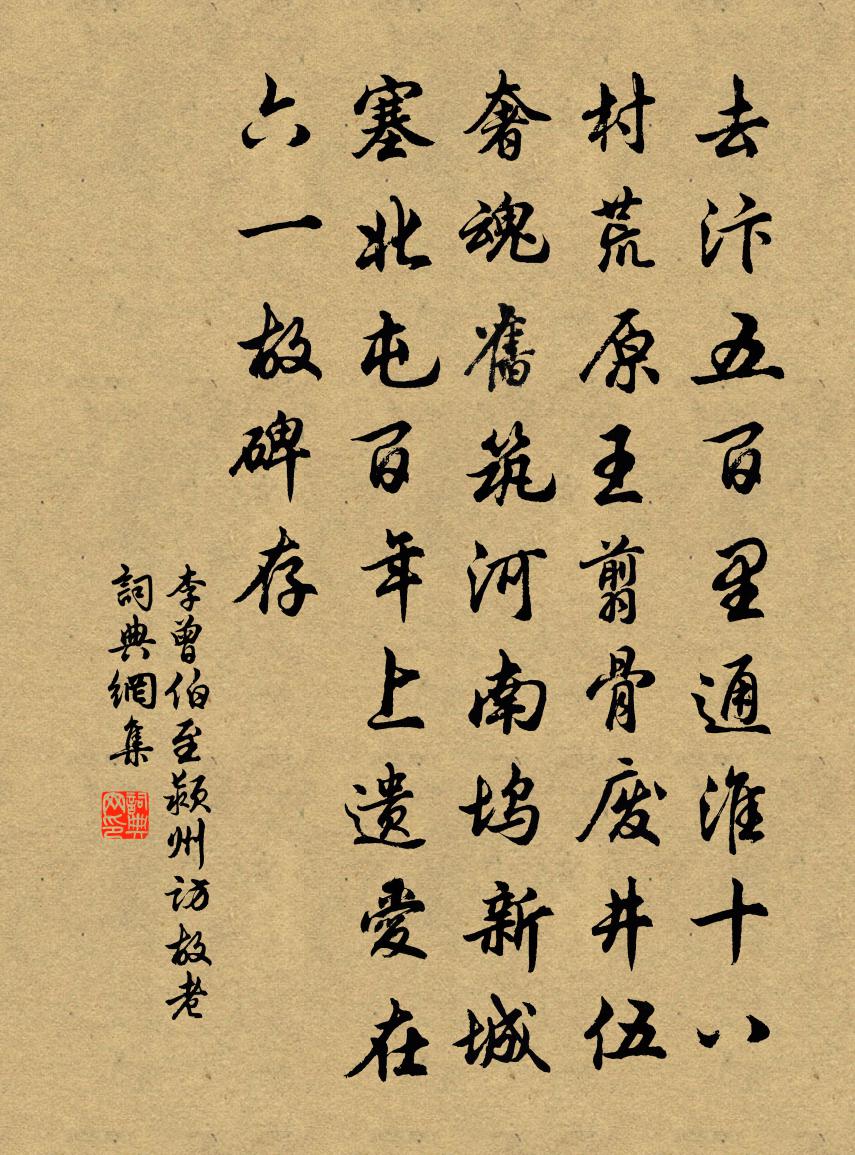 去汴五百里通淮十八
村荒原王翦骨廢井伍
奢魂舊筑河南塢新城
塞北屯百年上遺愛在
六一故碑存
李曾伯至潁州訪故老
詞典網集
詞典網印